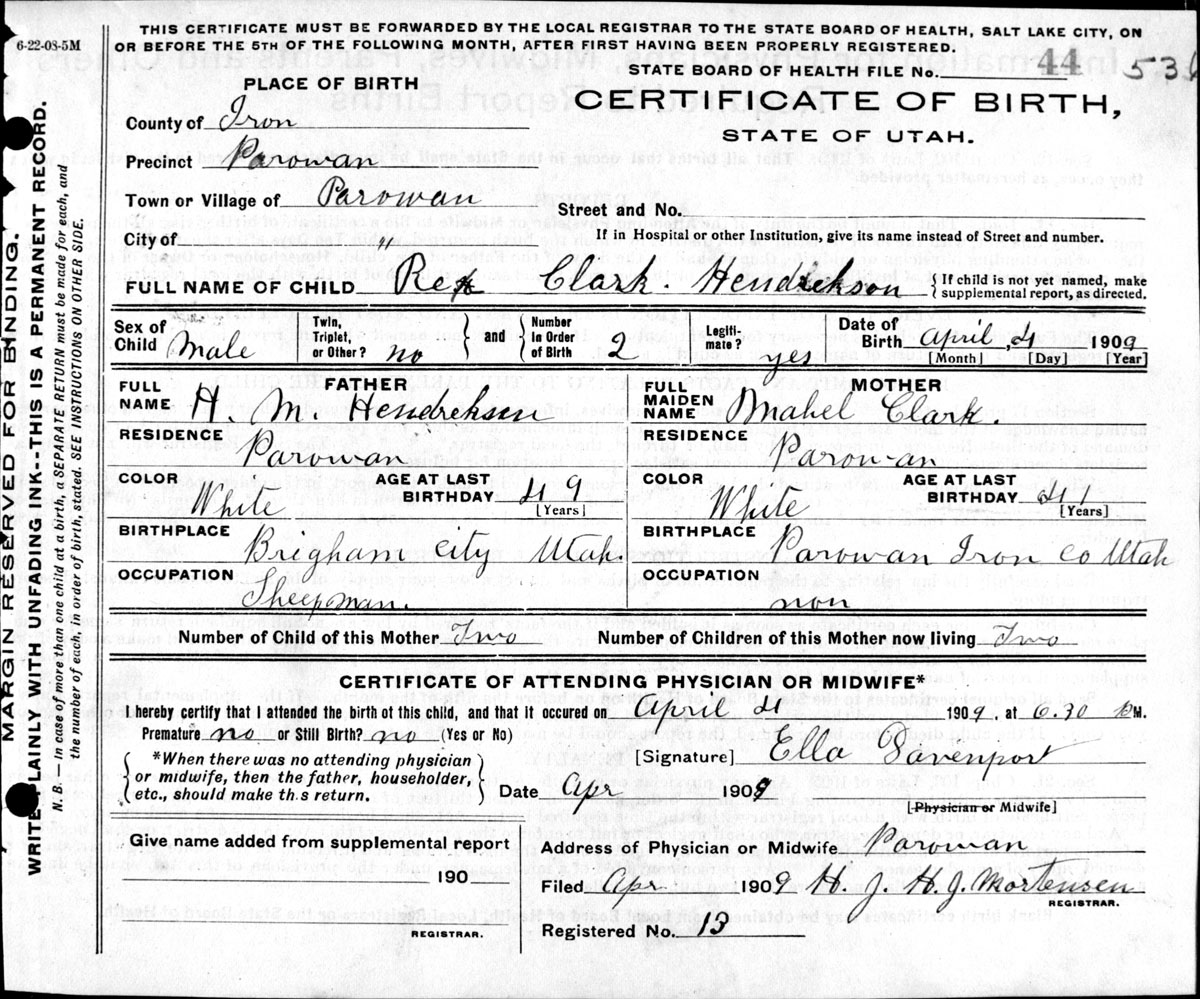 THIS CERTIFICATE MUST BE FORWARDED BY THE LOCAL REGISTRAR TO THE STATE BOARD OF HEALTH, SALT LAKE CITY, ON
OR BEFORE THE 5TH OF THE FOLLOWING MONTH, AFTER FIRST HAVING BEEN PROPERLY REGISTERED.
6-22-08-5M
STATE BOARD OF HEALTH FILE No. 44 53
PLACE OF BIRTH
CERTIFICATE OF BIRTH,
STATE OF UTAH.
County of Iron
Precinct Parowan
Town or Village of Parowan
Street and No.
City of "
If in Hospital or other Institution, give its name instead of Street and number.
FULL NAME OF CHILD Rex Clark. Hendrekson { If child is not yet named, make supplemental report, as directed.
Sex of Child Male
Twin, Triplet, or Other? no } and { Number in Order of Birth 2
Legiti-mate? yes
Date of Birth April. 4 1909
[Month] [Day] [Year]
FATHER
FULL NAME H M. Hendreksen
RESIDENCE Parowan
COLOR White
AGE AT LAST BIRTHDAY 49 [Years]
BIRTHPLACE Brigham City Utah.
OCCUPATION Sheepman.
MOTHER
FULL MAIDEN NAME Mabel Clark.
RESIDENCE Parowan
COLOR White
AGE AT LAST BIRTHDAY 41 [Years]
BIRTHPLACE Parowan Iron Co Utah
OCCUPATION non
Number of Child of this Mother Two Number of Children of this Mother now living Two
CERTIFICATE OF ATTENDING PHYSICIAN OR MIDWIFE*
I hereby certify that I attended the birth of this child, and that it occurred on April 4 1909, at 6.30 M.
Premature no or Still Birth? no (Yes or No)
[Signature] Ella Davenport
{ *When there was no attending physician or midwife, then the father, householder, etc., should make th s return. }
Date Apr 1909
[Physician or Midwife]
Give name added from supplemental report
190
REGISTRAR.
Address of Physician or Midwife Parowan
Filed Apr 1909 H. J. H. J. Mortensen
REGISTRAR.
Registered No. 13
MARGIN RESERVED FOR BINDING.
WRITE PLAINLY WITH UNFADING INK--THIS IS A PERMANENT RECORD.
N. B.— In case of more than one child at a birth, a SEPARATE RETURN must be made for each, and
the number of each, in order of birth, stated. SEE INSTRUCTIONS ON OTHER SIDE.